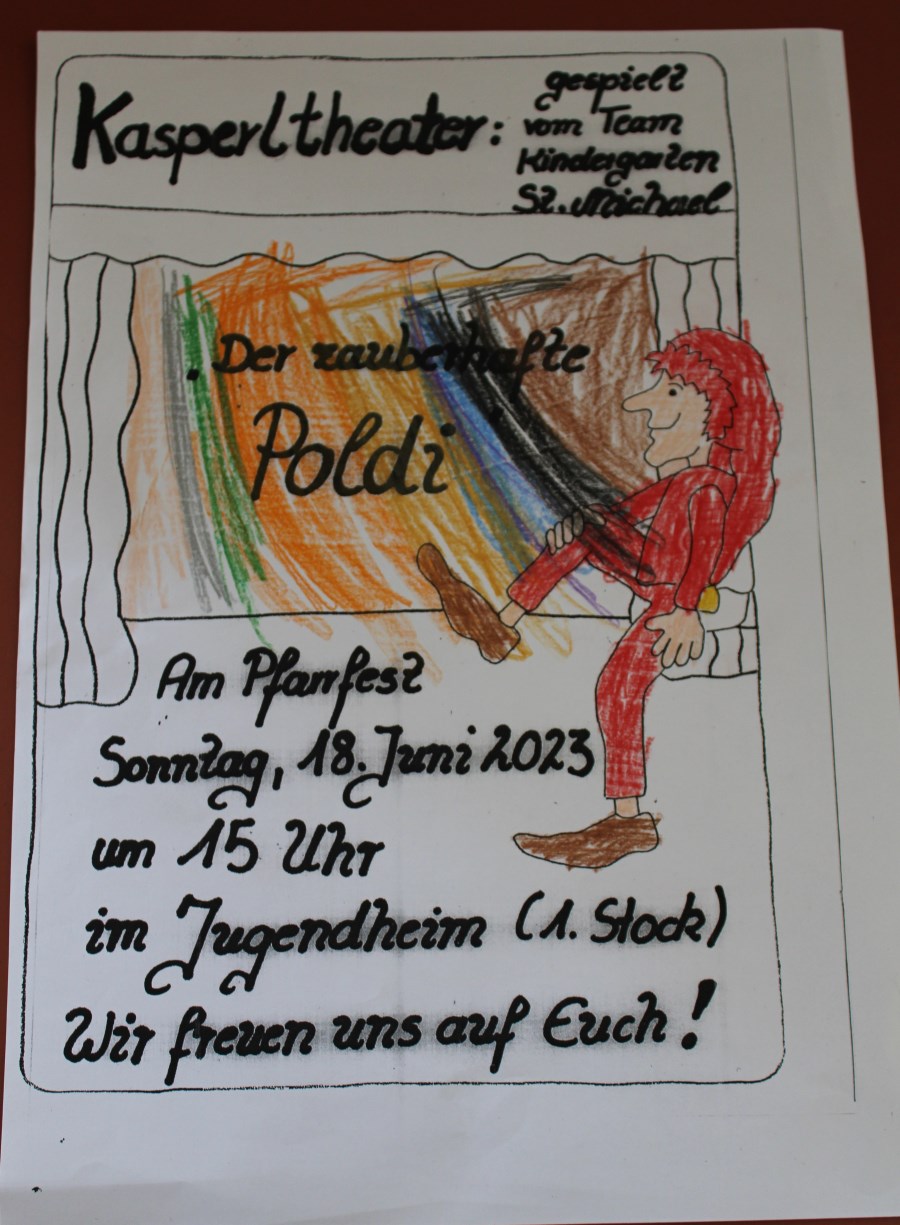 Kasperltheater:
gespielt
vom Team
Kindergarten
St. Michael
Der zauberhafte
Poldi
Am Pfarrfest
Sonntag, 18. Juni 2023
um 15 Uhr
im Jugendheim (1. Stock)
Wir freuen uns auf Euch!